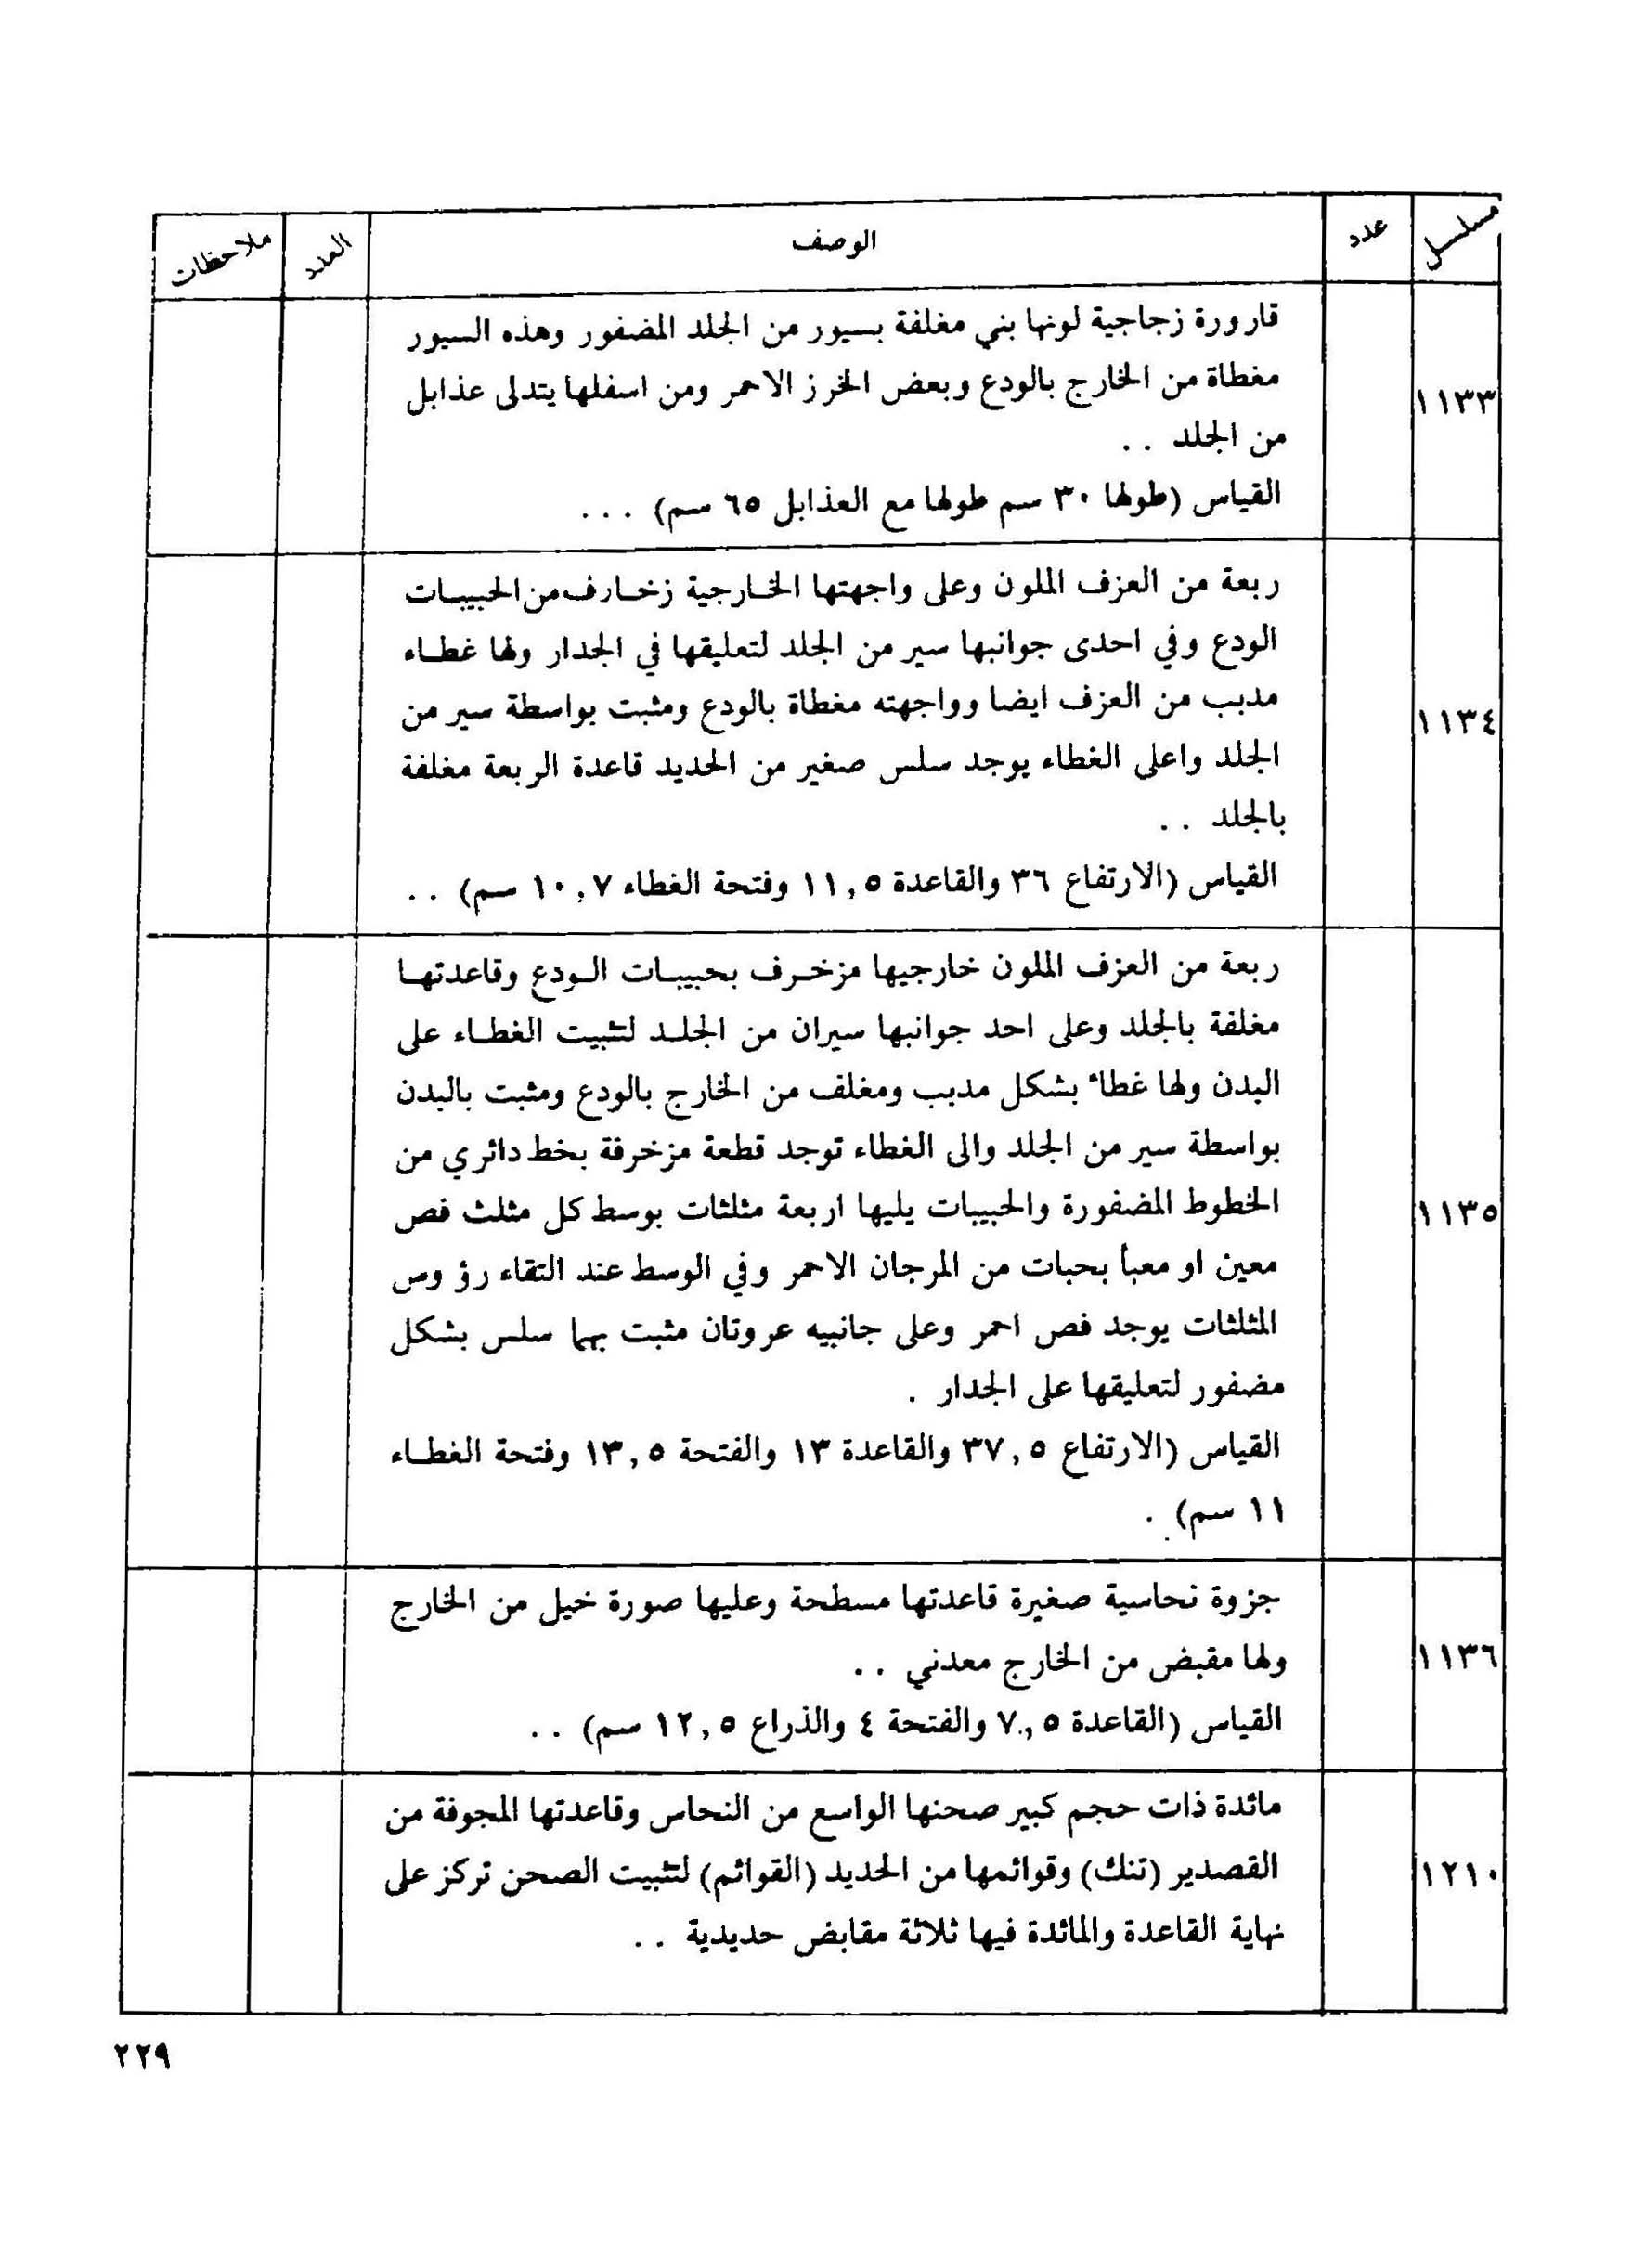 مسلسل عدد الوصف العدد ملاحظات
قارورة زجاجية لونها بني مغلفة بسيور من الجلد المضفور وهذه السيور
١١٣٣ مغطاة من الخارج بالودع وبعض الخرز الاحمر ومن اسفلها يتدلى عذابل
من الجلد . .
القياس (طولها ٣٠ سم طولها مع العذابل ٦٥ سم) . . .
ربعة من العزف الملون وعلى واجهتها الخارجية زخارف من الحبيبات
الودع وفي احدى جوانبها سير من الجلد لتعليقها في الجدار ولها غطاء
١١٣٤ مدبب من العزف ايضا وواجهته مغطاة بالودع ومثبت بواسطة سير من
الجلد واعلى الغطاء يوجد سلس صغير من الحديد قاعدة الربعة مغلفة
بالجلد . .
القياس (الارتفاع ٣٦ والقاعدة ١١,٥ وفتحة الغطاء ١٠,٧ سم) . .
ربعة من العزف الملون خارجيها مزخرف بحبيبات الودع وقاعدتها
مغلفة بالجلد وعلى احد جوانبها سيران من الجلد لتثبيت الغطاء على
البدن ولها غطاء بشكل مدبب ومغلف من الخارج بالودع ومثبت بالبدن
بواسطة سير من الجلد والى الغطاء توجد قطعة مزخرفة بخط دائري من
١١٣٥ الخطوط المضفورة والحبيبات يليها اربعة مثلثات بوسط كل مثلث فص
معين او معبأ بحبات من المرجان الاحمر وفي الوسط عند التقاء رؤوس
المثلثات يوجد فص احمر وعلى جانبيه عروتان مثبت بهما سلس بشكل
مضفور لتعليقها على الجدار .
القياس (الارتفاع ٣٧,٥ والقاعدة ١٣ والفتحة ١٣,٥ وفتحة الغطاء
١١ سم) .
جزوة نحاسية صغيرة قاعدتها مسطحة وعليها صورة خيل من الخارج
١١٣٦ ولها مقبض من الخارج معدني . .
القياس (القاعدة ٧,٥ والفتحة ٤ والذراع ١٢,٥ سم) . .
مائدة ذات حجم كبير صحنها الواسع من النحاس وقاعدتها المجوفة من
١٢١٠ القصدير (تنك) وقوائمها من الحديد (القوائم) لتثبيت الصحن تركز على
نهاية القاعدة والمائدة فيها ثلاثة مقابض حديدية . .
٢٢٩